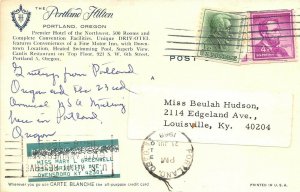 THE Portland Hilton
PORTLAND, OREGON
Premier Hotel of the Northwest. 500 Rooms and
Complete Convention Facilities. Unique DRIV-O-TEL
Features Convenience of a Fine Motor Inn, with Down-
town Location, Heated Swimming Pool, Superb View.
Canlis Restaurant on Top Floor. 921 S. W. 6th Street,
Portland 4, Oregon.
POST
Greetings from Portland
Oregon and the 23rd
Annual Meeting
here in Portland
Oregon
Miss Beulah Hudson,
2114 Edgeland Ave.,
Louisville, Ky. 40204
MISS MARY L. GREENWELL
OWENSBORO KY
PORTLAND
PM
1968
Wherever you go use CARTE BLANCHE the all-purpose credit card
PRINTED IN U.S.A.